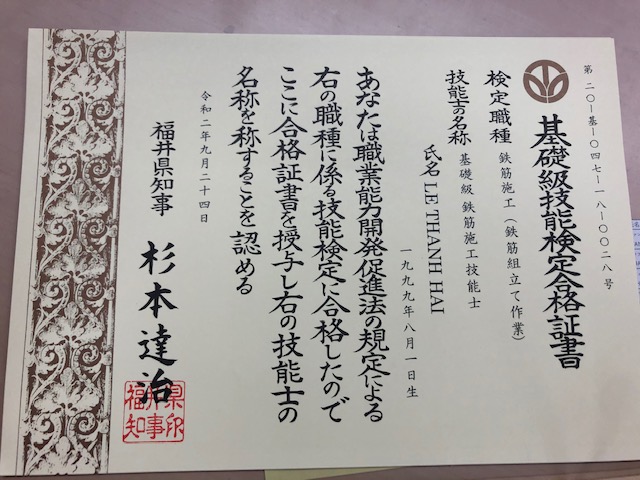 第二〇ー基ー〇四七ー一八ー〇〇二八号
基礎級技能検定合格証書
検定職種 鉄筋施工(鉄筋組立て作業)
技能士の名称 基礎級 鉄筋施工技能士
氏名 LE THANH HAI
一九九九年八月一日生
あなたは職業能力開発促進法の規定による
右の職種に係る技能検定に合格したので
ここに合格証書を授与し右の技能士の
名称を称することを認める
令和二年九月二十四日
福井県知事 杉本達治
福井県知事印